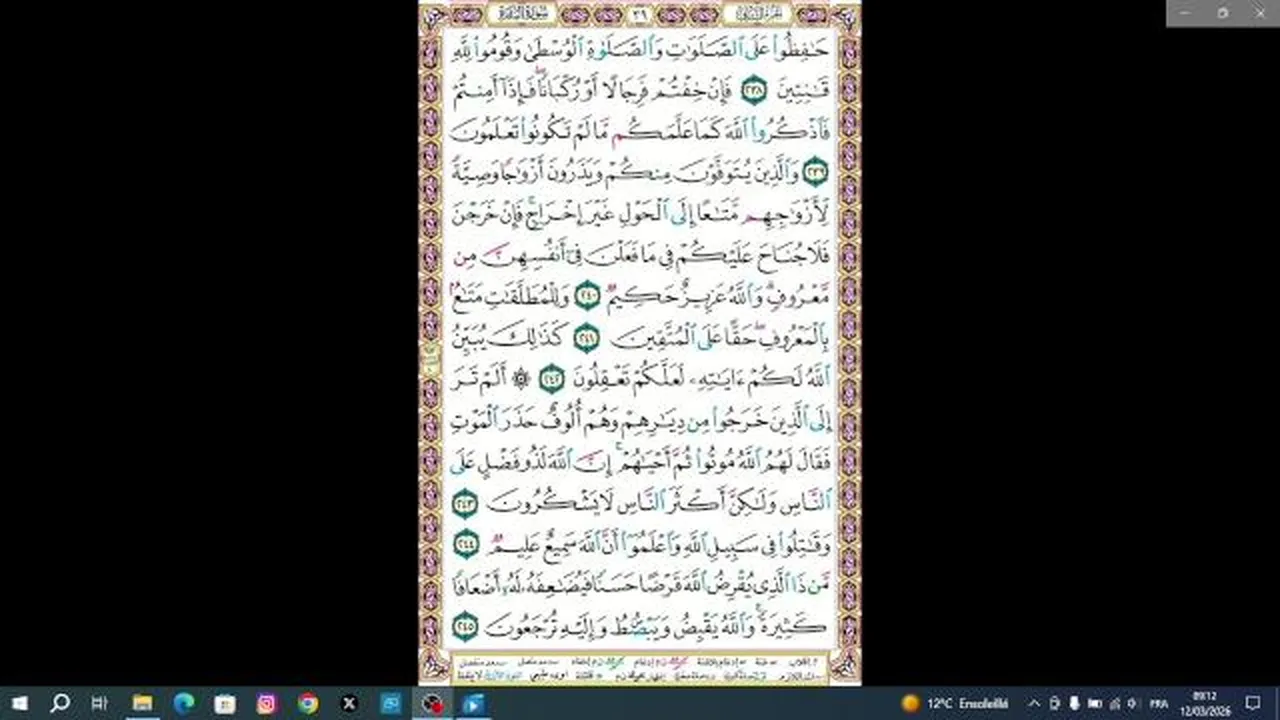 سورة البقرة
٣٩
الجزء الثاني
حَـٰفِظُوا۟ عَلَى ٱلصَّلَوَٰتِ وَٱلصَّلَوٰةِ ٱلْوُسْطَىٰ وَقُومُوا۟ لِلَّهِ
قَـٰنِتِينَ ٢٣٨ فَإِنْ خِفْتُمْ فَرِجَالًا أَوْ رُكْبَانًا ۖ فَإِذَآ أَمِنتُمْ
فَٱذْكُرُوا۟ ٱللَّهَ كَمَا عَلَّمَكُم مَّا لَمْ تَكُونُوا۟ تَعْلَمُونَ
٢٣٩ وَٱلَّذِينَ يُتَوَفَّوْنَ مِنكُمْ وَيَذَرُونَ أَزْوَٰجًا وَصِيَّةً
لِّأَزْوَٰجِهِم مَّتَـٰعًا إِلَى ٱلْحَوْلِ غَيْرَ إِخْرَاجٍ ۚ فَإِنْ خَرَجْنَ
فَلَا جُنَاحَ عَلَيْكُمْ فِى مَا فَعَلْنَ فِىٓ أَنفُسِهِنَّ مِن
مَّعْرُوفٍ ۗ وَٱللَّهُ عَزِيزٌ حَكِيمٌ ٢٤٠ وَلِلْمُطَلَّقَـٰتِ مَتَـٰعٌۢ
بِٱلْمَعْرُوفِ ۖ حَقًّا عَلَى ٱلْمُتَّقِينَ ٢٤١ كَذَٰلِكَ يُبَيِّنُ
ٱللَّهُ لَكُمْ ءَايَـٰتِهِۦ لَعَلَّكُمْ تَعْقِلُونَ ٢٤٢ ۞ أَلَمْ تَرَ
إِلَى ٱلَّذِينَ خَرَجُوا۟ مِن دِيَـٰرِهِمْ وَهُمْ أُلُوفٌ حَذَرَ ٱلْمَوْتِ
فَقَالَ لَهُمُ ٱللَّهُ مُوتُوا۟ ثُمَّ أَحْيَـٰهُمْ ۚ إِنَّ ٱللَّهَ لَذُو فَضْلٍ عَلَى
ٱلنَّاسِ وَلَـٰكِنَّ أَكْثَرَ ٱلنَّاسِ لَا يَشْكُرُونَ ٢٤٣
وَقَـٰتِلُوا۟ فِى سَبِيلِ ٱللَّهِ وَٱعْلَمُوٓا۟ أَنَّ ٱللَّهَ سَمِيعٌ عَلِيمٌ ٢٤٤
مَّن ذَا ٱلَّذِى يُقْرِضُ ٱللَّهَ قَرْضًا حَسَنًا فَيُضَـٰعِفَهُۥ لَهُۥٓ أَضْعَافًا
كَثِيرَةً ۚ وَٱللَّهُ يَقْبِضُ وَيَبْصُۜطُ وَإِلَيْهِ تُرْجَعُونَ ٢٤٥
12°C Ensoleillé
FRA
09:12
12/03/2026